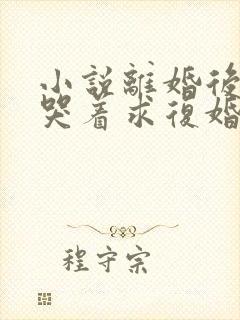 小説離婚後
哭着求復婚
程守宗